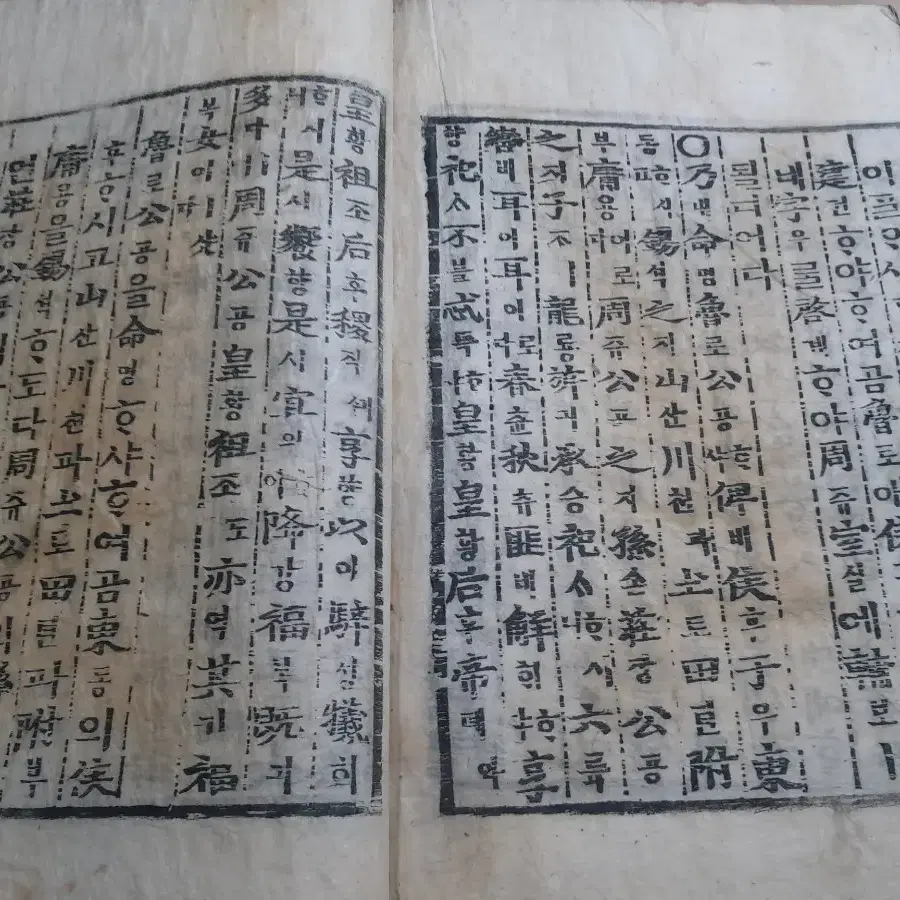 이ᄀᆞᆯᄋᆞ샤
建건ᄒᆞ야ᄒᆞ여곰魯로애侯
네宇우ᄅᆞᆯ啓계ᄒᆞ야周쥬室실에輔보ㅣ
될디어다
○乃내命명魯로公공ᄒᆞ샤俾비侯후于우東
동ᄒᆞ시고錫셕之지山산川쳔과土토田뎐附
부庸용이로다周쥬公공之지孫손莊장公공
之지子ᄌᆞㅣ龍룡旂긔承승祀ᄉᆞᄒᆞ시니六륙
轡비耳이耳이로다春츈秋츄匪비解ᄒᆡᄒᆞ샤享
향祀ᄉᆞ不블忒특ᄒᆞ샤皇황皇황后후帝뎨
皇황祖조后후稷직ᄭᅴ享향以이騂셩犧희
ᄒᆞ시니是시饗향是시宜의ᄒᆞ야降강福복旣긔
多다ㅣ며周쥬公공皇황祖조도亦역其기福
복女녀ㅣ샷다
魯로公공을命명ᄒᆞ샤ᄒᆞ여곰東동의侯
후ᄒᆞ시고山산川쳔과土토田뎐과附부
庸용을錫셕ᄒᆞ도다周쥬公공의孫
손莊장公공의